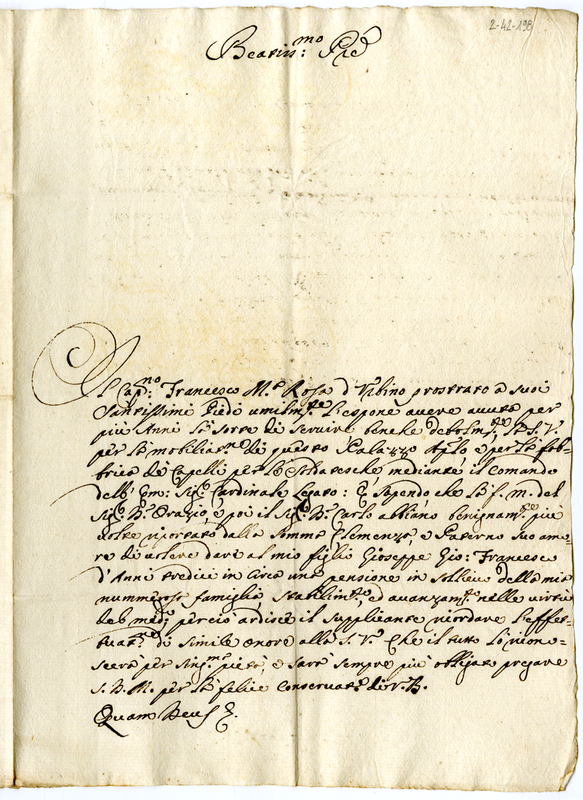 2-42-198
Beatiss:mo Pre
Il Cap:no Francesco M.a Rosa d'Urbino prostrato a suoi
Santissimi Piedi umilm.te L'espone avere avuto per
più Anni la sorte di servire benche debolm.te V. S.
per la mobiliar.ne di questo Palazzo Ap.lo e per la fab-
brica de Capelli per le Soldatesche mediante il comando
dell' Em: Sig.r Cardinale Legato: E sapendo che la f. m. del
Sig.r D. Orazio, e poi il Sig.r D. Carlo abbiano benignam.te più
volte riportato dalla somma Clemenza, e Paterno suo amo-
re di volere dare al mio figlio Gioseppe Gio: Francesco
d'Anni tredici in circa una pensione in sollievo della mia
nummerosa famiglia, stabilim.to, ed avanzam.to nelle virtù
del med.o perciò ardisce il supplicante ricordare l'effet-
tuat.ne di simile onore alla S. V. che il tutto lo ricono-
scerà per sing.ma pietà, e sarà sempre più obligato pregare
S. D. M. per la felice conservat.ne
Quam Deus &.